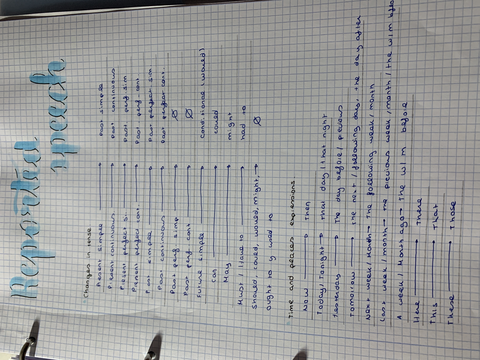 Reported speech
Changes in tense
Present simple → Past simple
Present continuous → Past continuous
Present perfect sim → Past perf sim
Present perfect cont → Past perf cont
Past simple → Past perfect sim
Past continuous → Past perfect cont.
Past perf simp → Ø
Past perf cont → Ø
Future simple → Conditional (would)
Can → could
May → might
Must / Have to → had to
Should, could, would, might, → Ø
ought to y used to
Time and places expressions
Now → Then
Today/Tonight → That day / that night
Yesterday → The day before / previous
Tomorrow → The next / following day, the day after
Next week/month → The following week / month
Last week / month → The previous week / month / the w/m before
A week / month ago → The w/m before
Here → There
This → That
These → Those